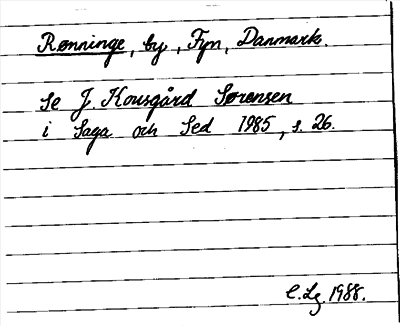 Rønninge, by, Fyn, Danmark.
Se J. Kousgård Sørensen
i Saga och Sed 1985, s. 26.
C.Lg. 1988.